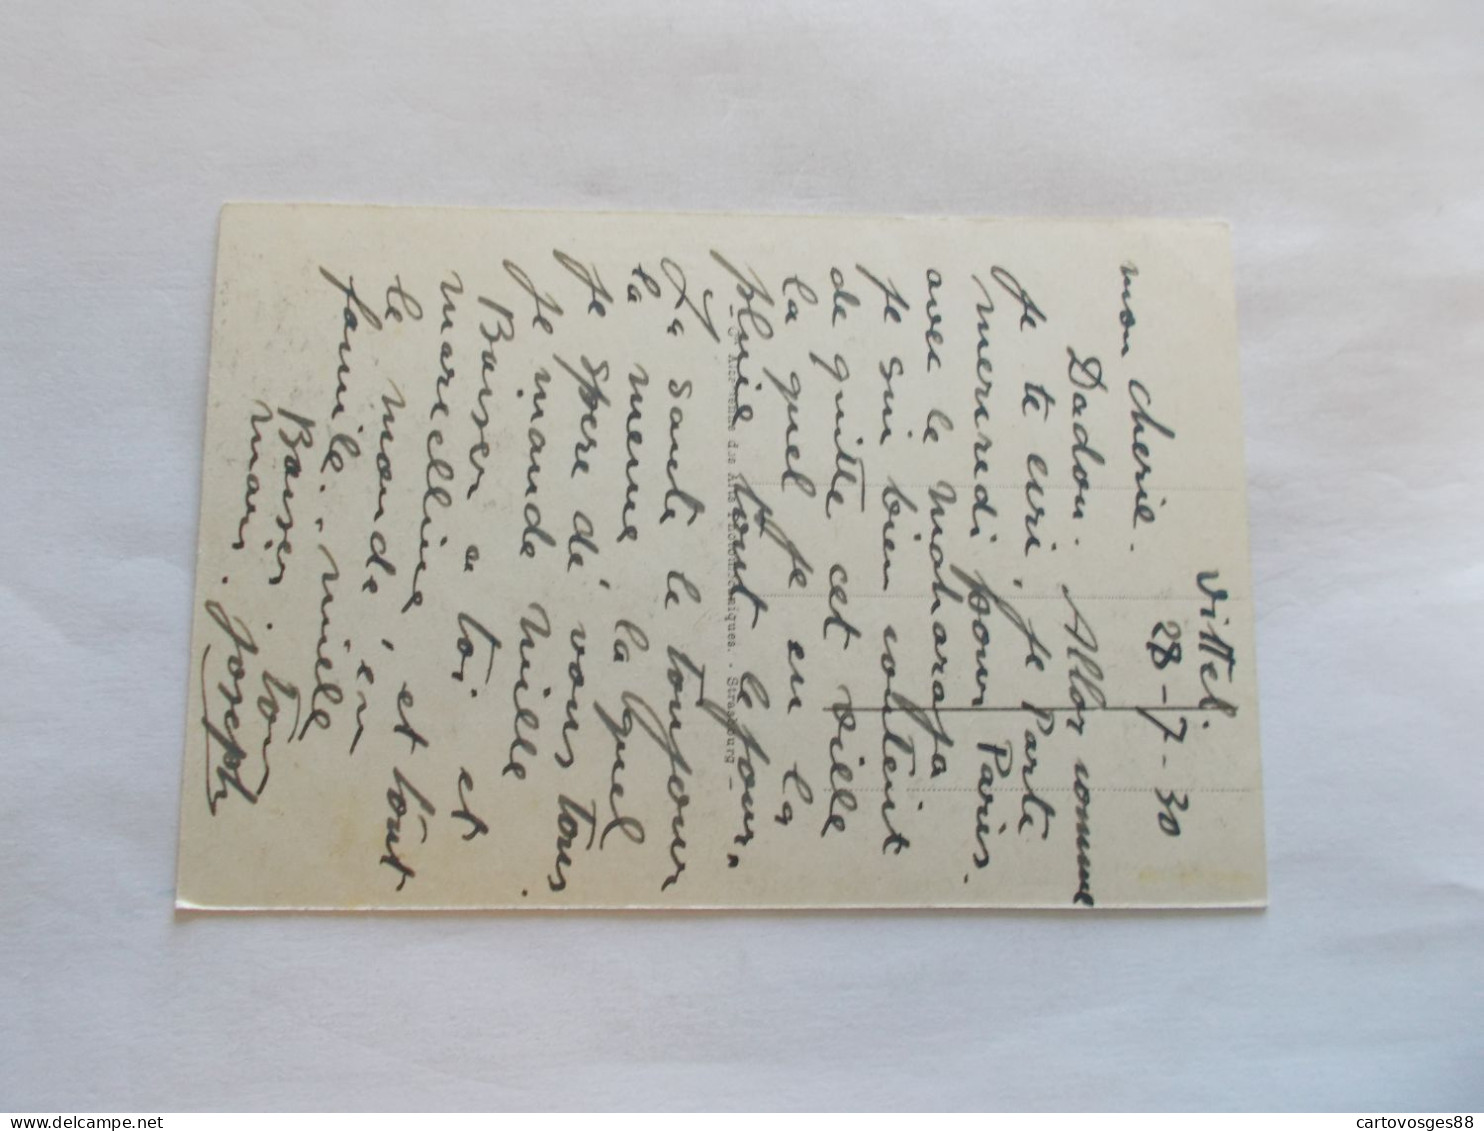 Vittel.
28-7-30
mon cherie.
Dadou. Allor comme
Je te ecri, je Parte
mercredi pour Paris.
avec le Maharaja
je sui bien contenit
de quitte cet ville
la quel Je en la
pluie tout le jour,,
La sante le toujour
la meme la lquel
Je spere dé vous tous
Je mande mille.
Baiser a toi et
marcelline, et tout
le monde, en
famile. mille
Baiser. ton
mari. Joseph
- Cie Alsacienne des Arts Photomécaniques. - Strasbourg -
cartovosges88